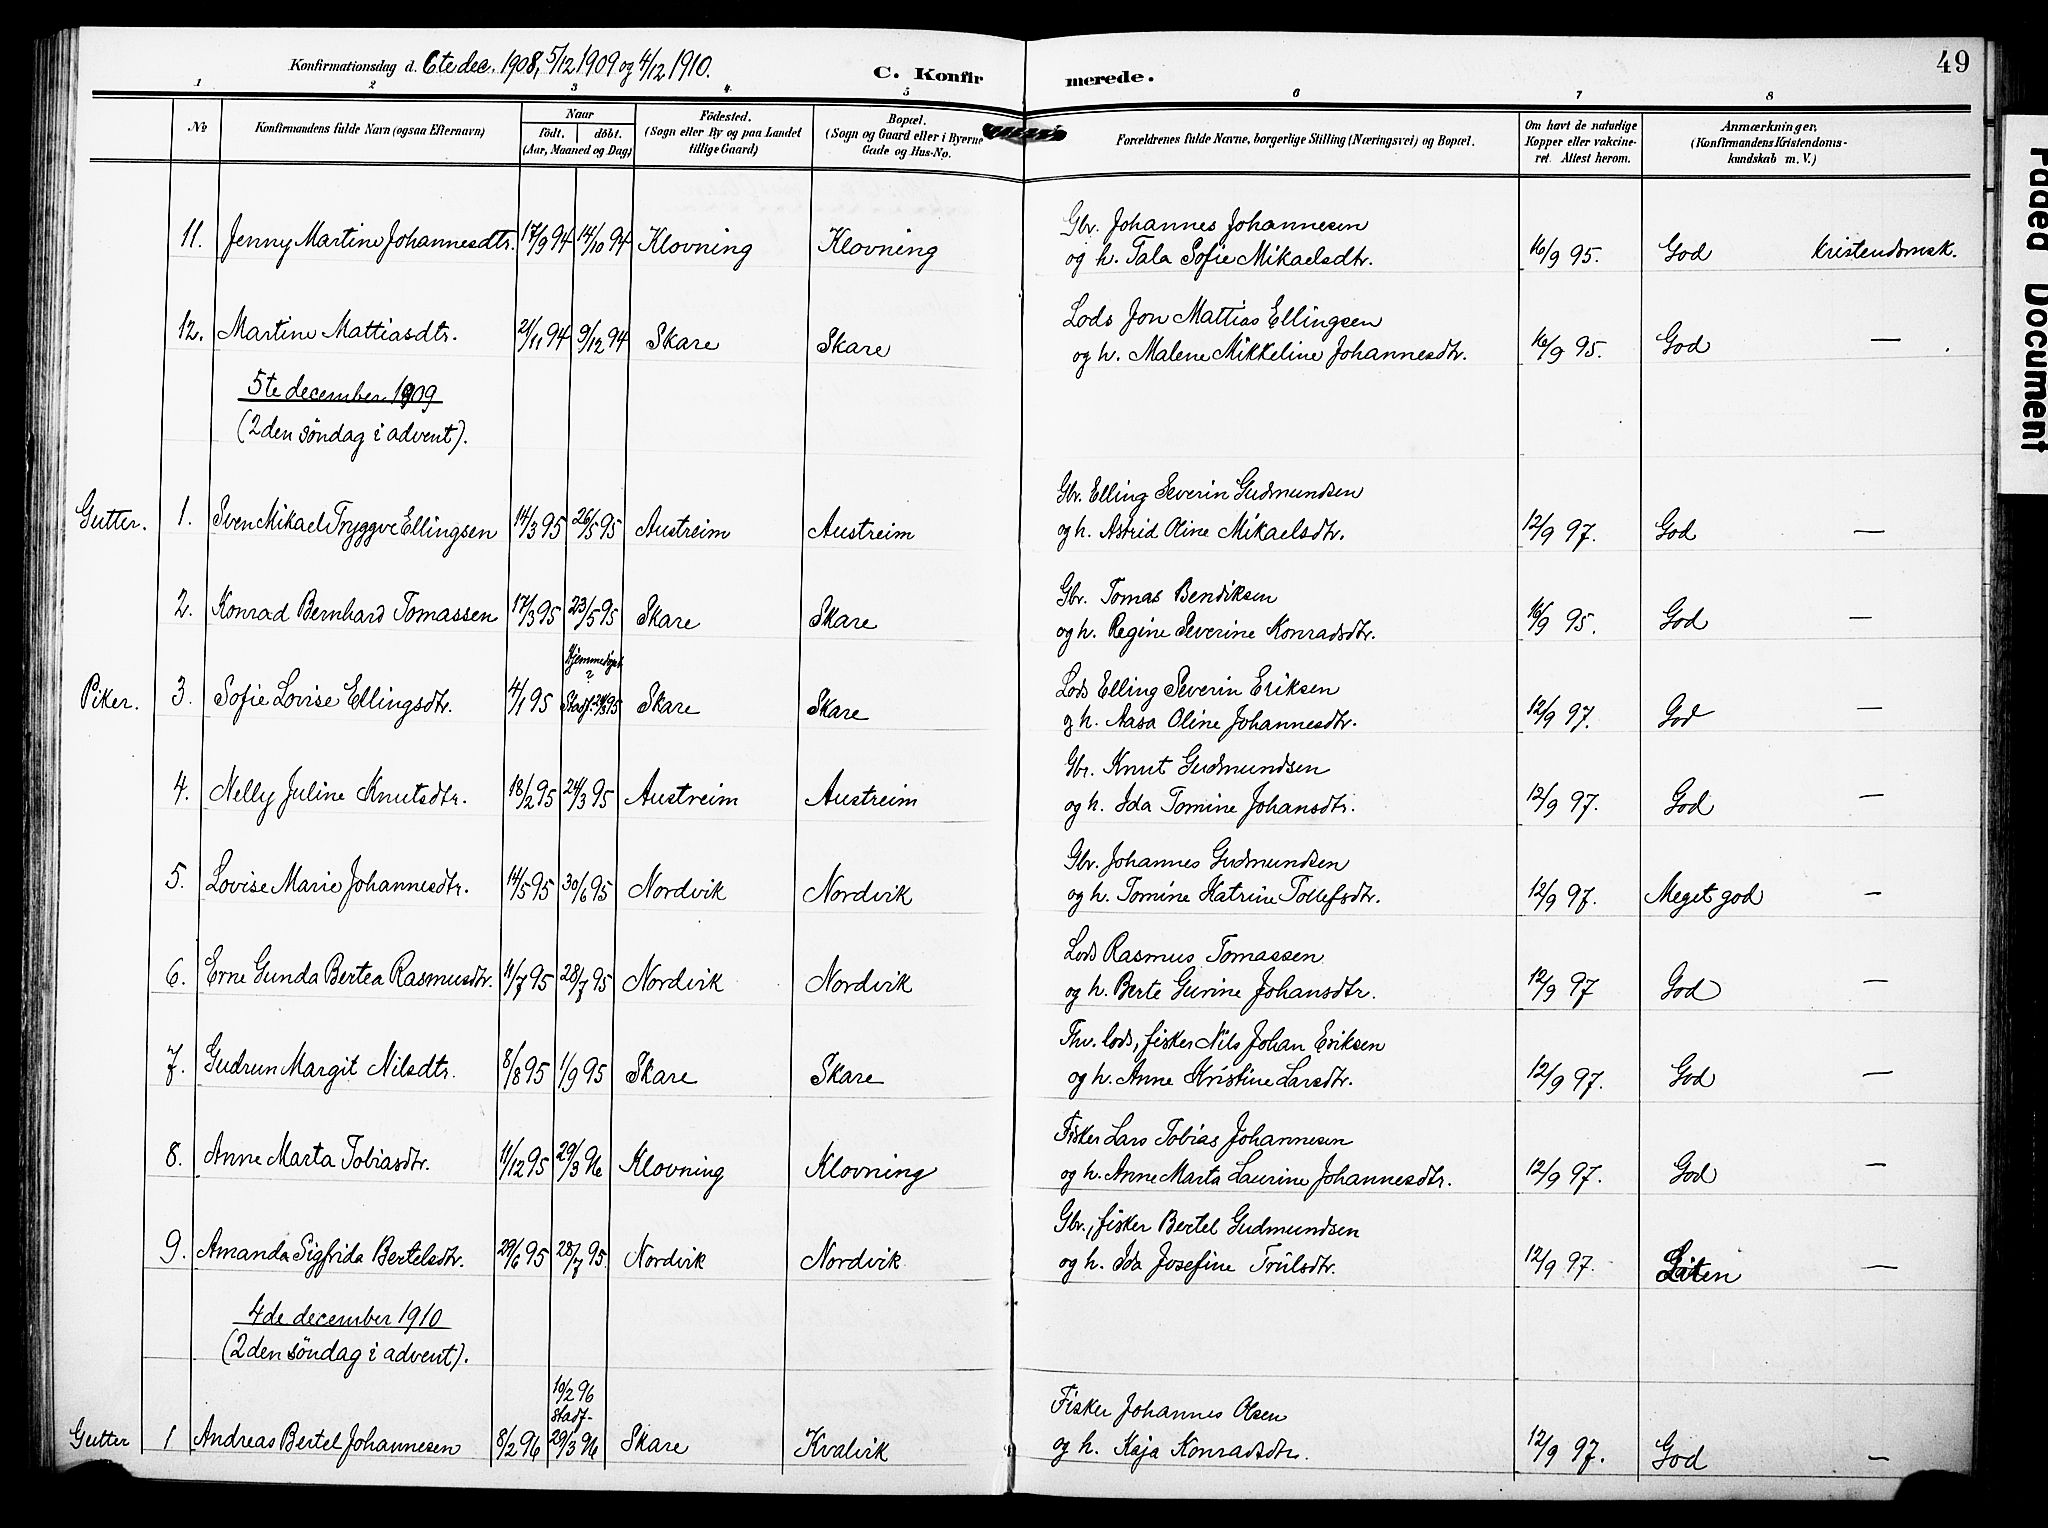 Konfirmationsdag d. 6te dec. 1908, 5/12 1909 og 4/12 1910. C. Konfirmerede. 49
1 2 3 4 5 6 7 8
No Konfirmandens fulde Navn (ogsaa Efternavn) Naar født. døbt. (Aar, Maaned og Dag) Fødested. (Sogn eller By og paa Landet tillige Gaard) Bopæl. (Sogn og Gaard eller i Byerne Gade og Hus-No. Forældrenes fulde Navne, borgerlige Stilling (Næringsvei) og Bopæl. Om havt de naturlige Kopper eller vakcineret. Attest herom. Anmærkninger, (Konfirmandens Kristendomskundskab m. V.)
11. Jenny Martine Johannesdtr. 17/9 94 14/10 94 Klovning Klovning Gbr. Johannes Johannesen
og h. Tala Sofie Mikaelsdtr. 16/9 95. God Kristendomsk.
12. Martine Mattiasdtr. 21/11 94 9/12 94 Skare Skare Lods Jon Mattias Ellingsen
og h. Malene Mikkeline Johannesdtr. 16/9 95. God —
5te december 1909
(2den søndag i advent).
Gutter. 1. Sven Mikael Tryggve Ellingsen 14/3 95 26/5 95 Austreim Austreim Gbr. Elling Severin Gudmundsen
og h. Astrid Oline Mikaelsdtr. 12/9 97. God —
2. Konrad Bernhard Tomassen 17/3 95 23/5 95 Skare Skare Gbr. Tomas Bendiksen
og h. Regine Severine Konradsdtr. 16/9 95. God —
Piker. 3. Sofie Lovise Ellingsdtr. 4/1 95 Hjemmedøpt ? Stadf. 95 Skare Skare Lods Elling Severin Eriksen
og h. Aasa Oline Johannesdtr. 12/9 97. God —
4. Nelly Juline Knutsdtr. 18/2 95 24/3 95 Austreim Austreim Gbr. Knut Gudmundsen
og h. Ida Tomine Johansdtr. 12/9 97. God —
5. Lovise Marie Johannesdtr. 14/5 95 30/6 95 Nordvik Nordvik Gbr. Johannes Gudmundsen
og h. Tomine Katrine Tollefsdtr. 12/9 97. Meget god —
6. Erne Gunda Bertea Rasmusdtr. 11/7 95 28/7 95 Nordvik Nordvik Lods Rasmus Tomassen
og h. Berte Gurine Johansdtr. 12/9 97 God —
7. Gudrun Margit Nilsdtr. 8/8 95 1/9 95 Skare Skare Thv. lods, fisker Nils Johan Eriksen
og h. Anne Kristine Larsdtr. 12/9 97. God —
8. Anne Marta Tobiasdtr. 11/12 95 29/3 96 Klovning Klovning Fisker Lars Tobias Johannesen
og h. Anne Marta Laurine Johannesdtr. 12/9 97. God —
9. Amanda Sigfrida Bertelsdtr. 29/6 95 28/7 95. Nordvik Nordvik Gbr., fisker Bertel Gudmundsen
og h. Ida Josefine Trulsdtr. 12/9 97. Liten —
4de december 1910
(2den søndag i advent).
Gutter 1 Andreas Bertel Johannesen 8/2 96 10/2 96 Stadf. 29/3 96 Skare Kvalvik Fisker Johannes Olsen
og h. Kaja Konradsdtr. 12/9 97. God —
Faded Document